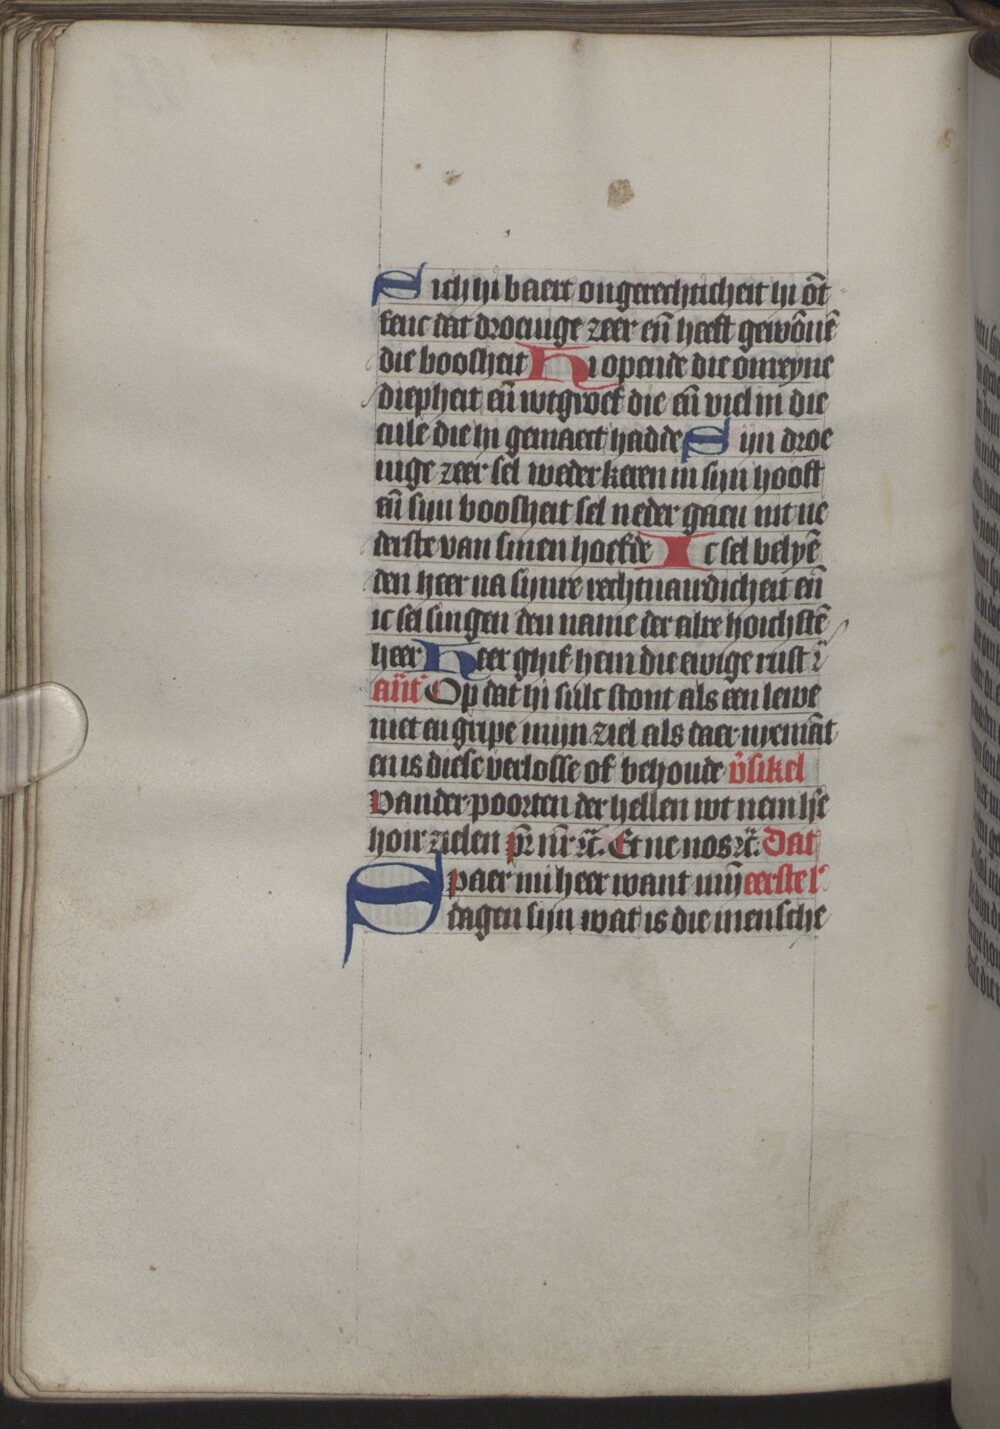 Sich hi baert ongerechticheit hi ōt
fenc dat droeuige zeer eñ heeft gewōnē
die boosheit Hi opende die onreyne
diepheit eñ wtgroef die eñ viel in die
cule die hi gemaect hadde Sijn droe
uige zeer sel weder keren in sijn hooft
eñ sijn boosheit sel neder gaen int ne
derste van sinen hoefde Ic sel belyē
den heer na sijnre rechtuaerdicheit eñ
ic sel singen den name der alre hoichstē
heer Heer ghif hem die ewige rust
ant̄ Op dat hi sulc stont als een lewe
niet en gripe mijn ziel als daer nyemāt
en is diese verlosse of behoude v̄sikel
Vander poorten der hellen wt nem hē
hoir zielen pr̄ nr̄ ⁊c̄. Et ne nos ⁊c̄. Dat
Spaer mi heer want mij̄ eerste l
dagen sijn wat is die mensche